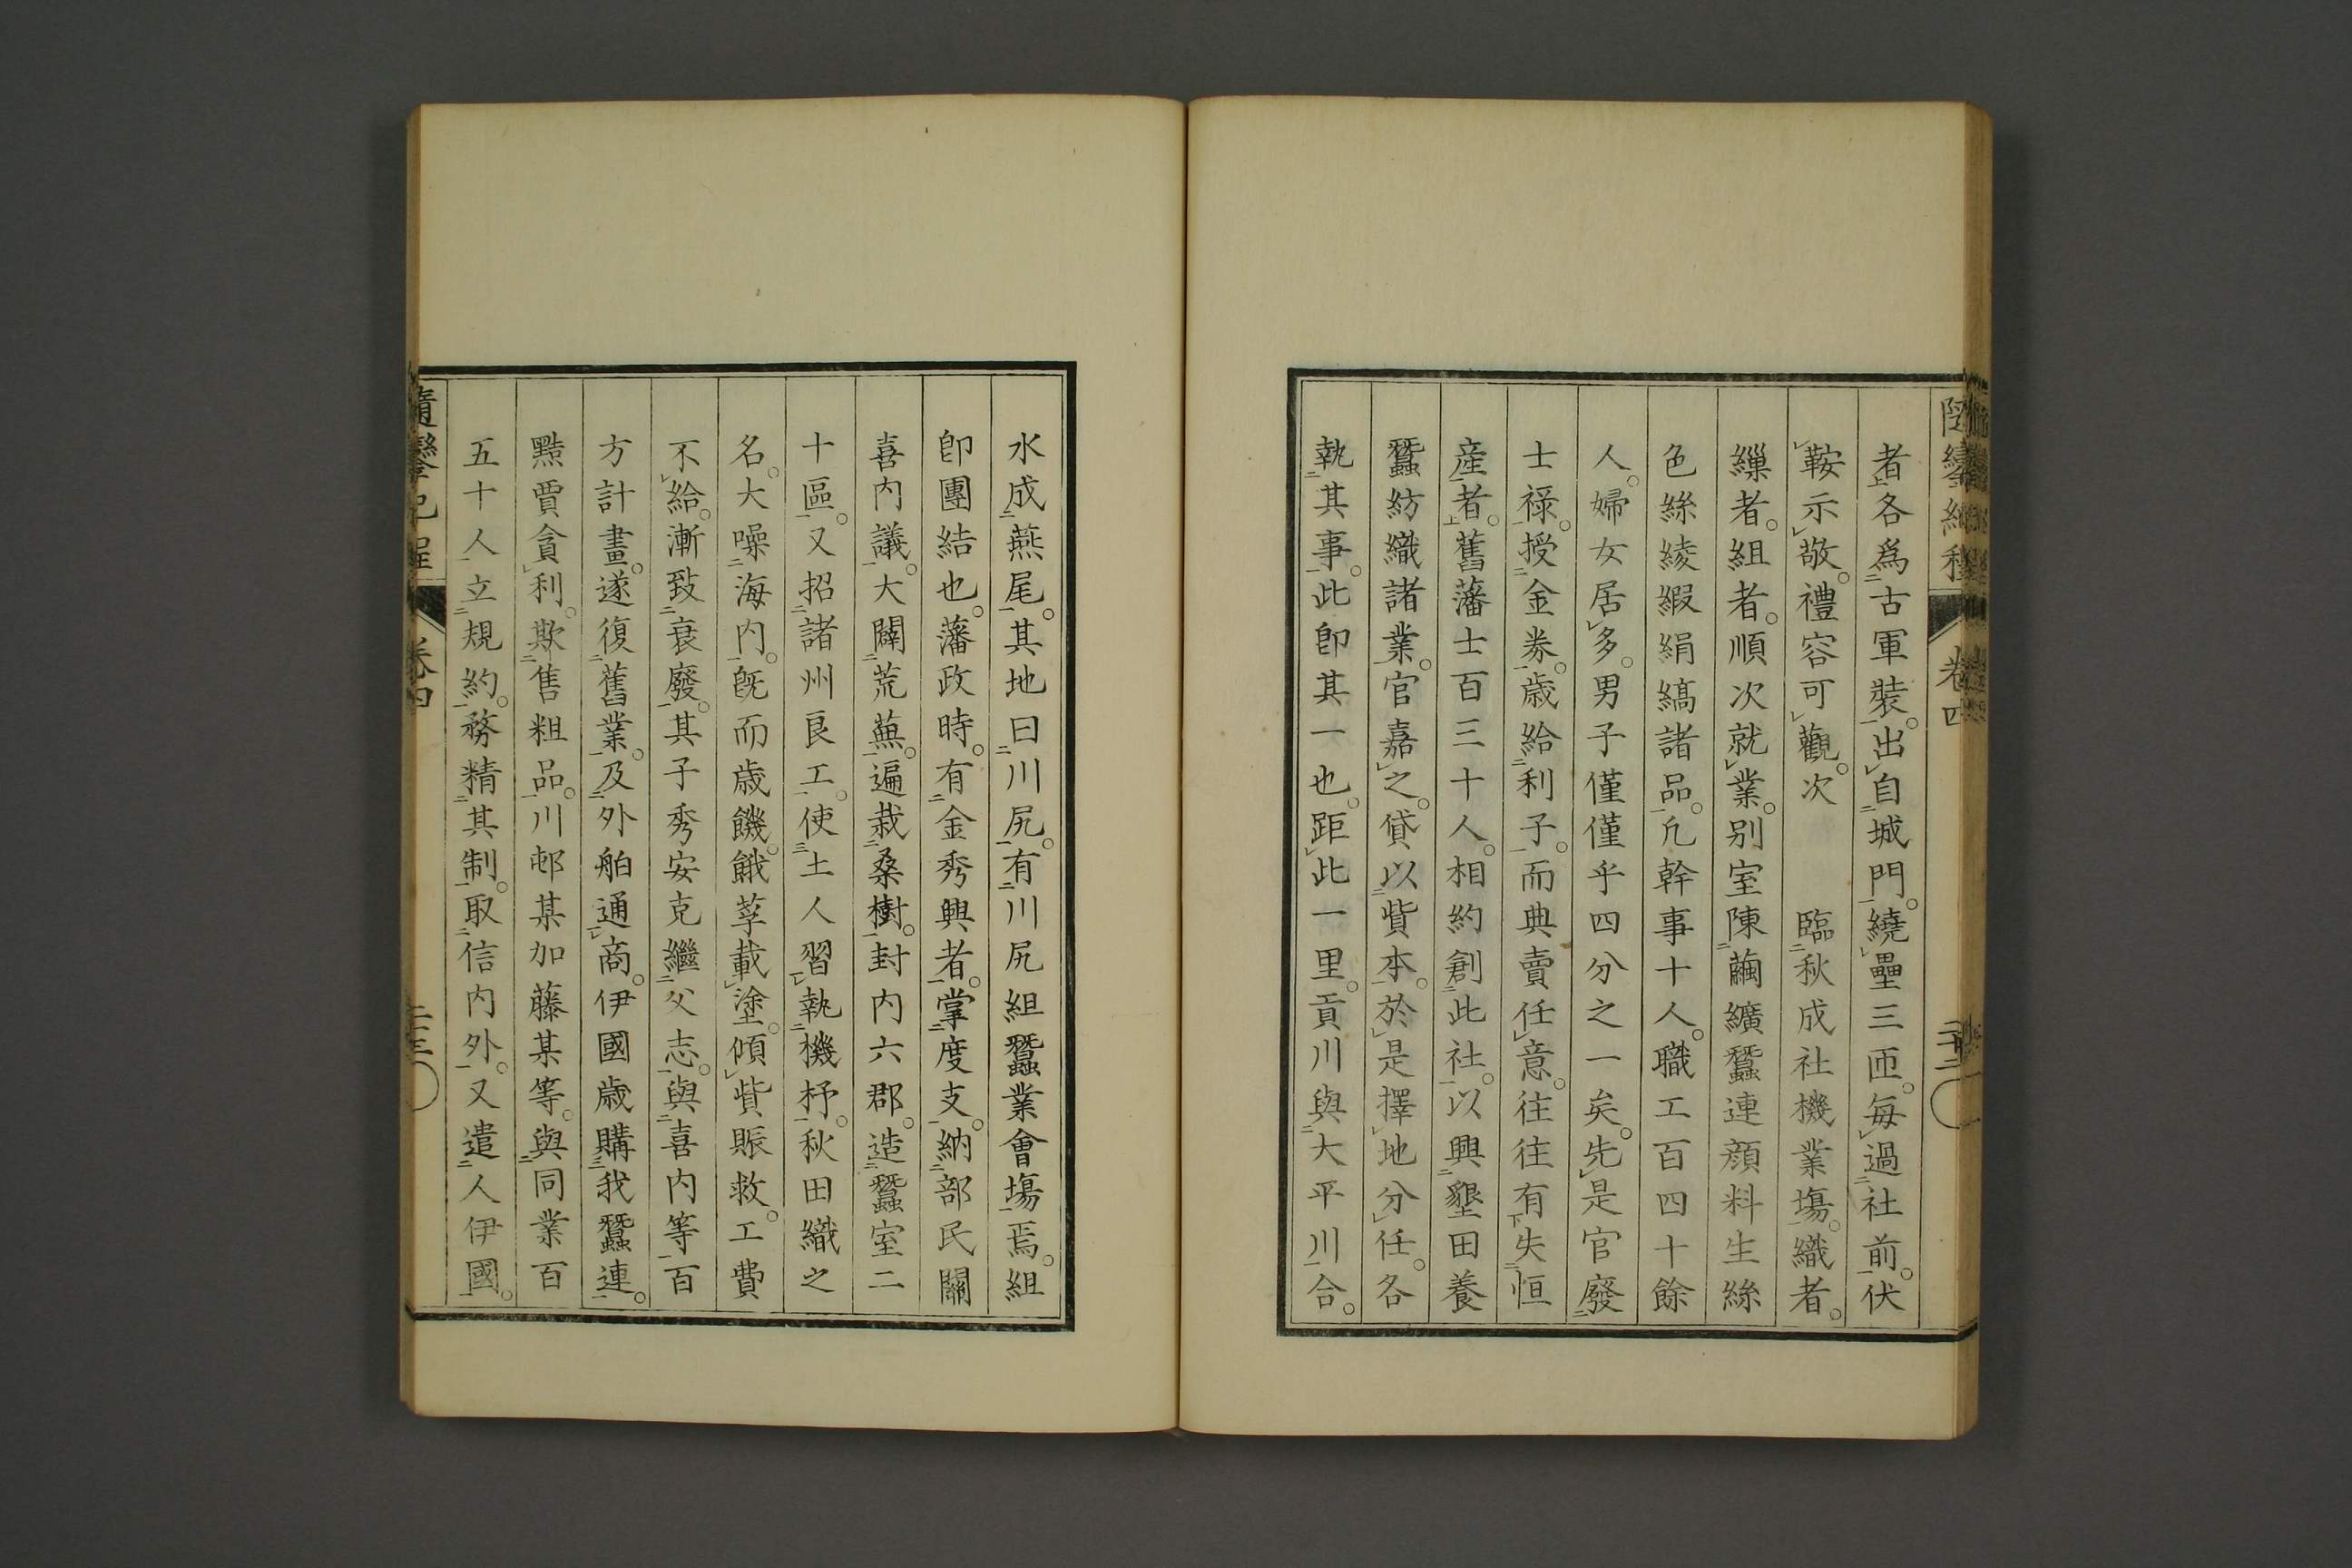 者各爲古軍裝。出自城門。繞壘三匝。每過社前。伏
鞍示敬。禮容可觀。次　臨秋成社機業場。織者。
繅者。組者。順次就業。別室陳繭纊蠶連顔料生絲
色絲綾縀絹縞諸品。凡幹事十人。職工百四十餘
人。婦女居多。男子僅僅乎四分之一矣。先是官廢
士祿。授金券。歲給利子。而典賣任意。往往有失恒
産者。舊藩士百三十人。相約創此社。以興墾田養
蠶紡織諸業。官嘉之。貸以貲本。於是擇地分任。各
執其事。此卽其一也。距此一里。貢川與大平川合。
水成燕尾。其地曰川尻。有川尻組蠶業會塲焉。組
卽團結也。藩政時。有金秀興者。掌度支。納部民關
喜內議。大闢荒蕪。遍栽桑樹。封內六郡。造蠶室二
十區。又招諸州良工。使土人習執機杼。秋田織之
名。大噪海內。旣而歲饑。餓莩載塗。傾貲賑救。工費
不給。漸致衰廢。其子秀安克繼父志。與喜內等百
方計畫。遂復舊業。及外舶通商。伊國歲購我蠶連。
黠賈貪利。欺售粗品。川邨某加藤某等。與同業百
五十人立規約。務精其制。取信內外。又遣人伊國。
隨鑾紀程　卷四